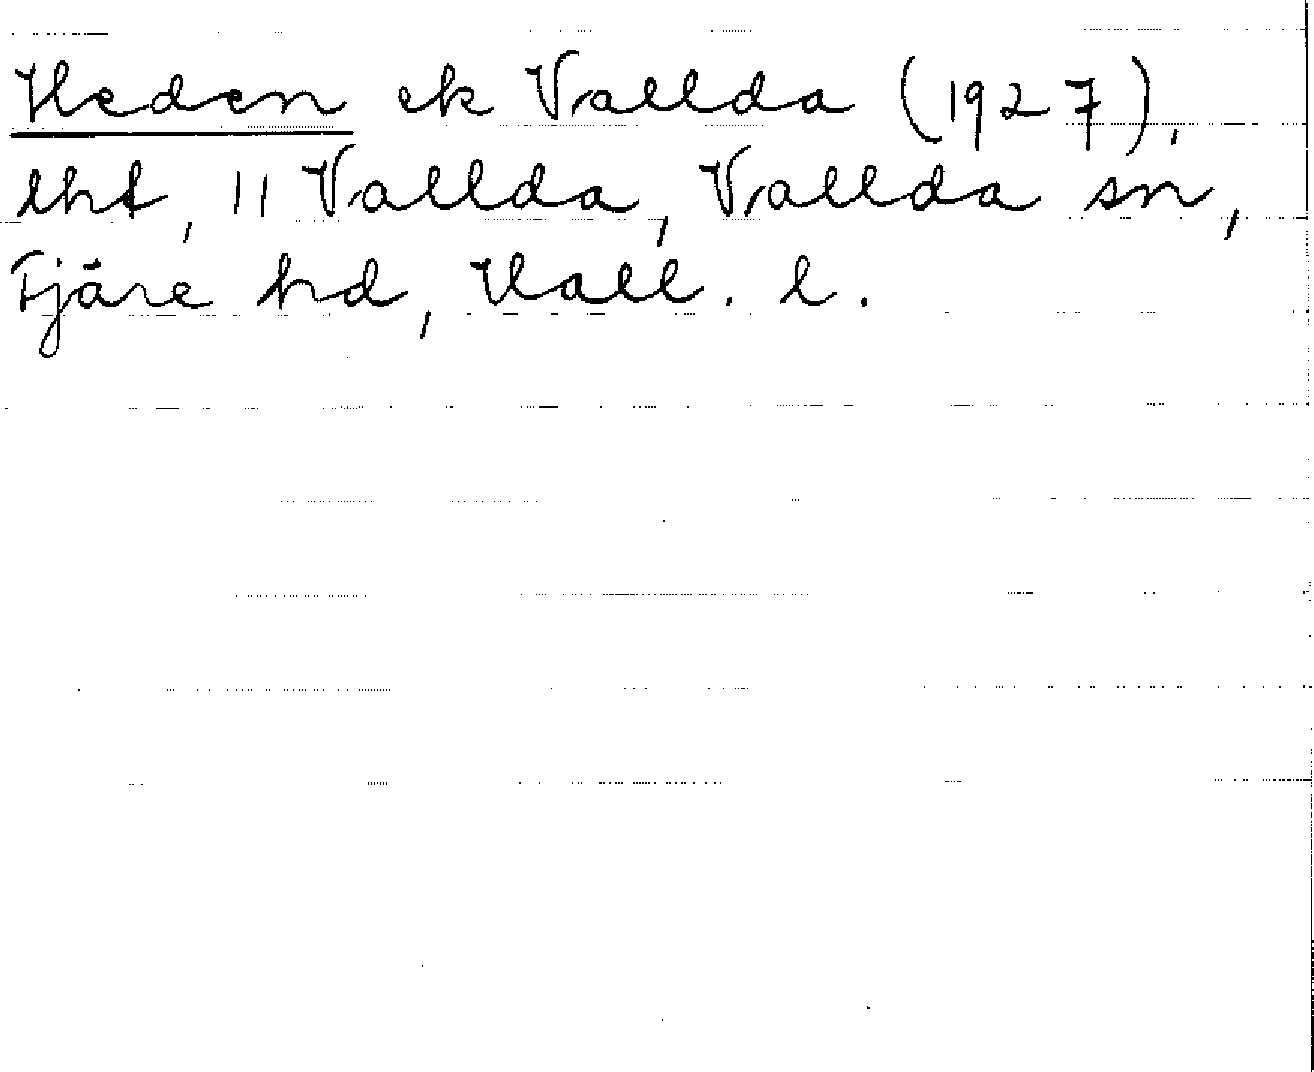 Heden ek Vallda (1927),
lht, 11 Vallda, Vallda sn,
Fjäre hd, Hall. l.